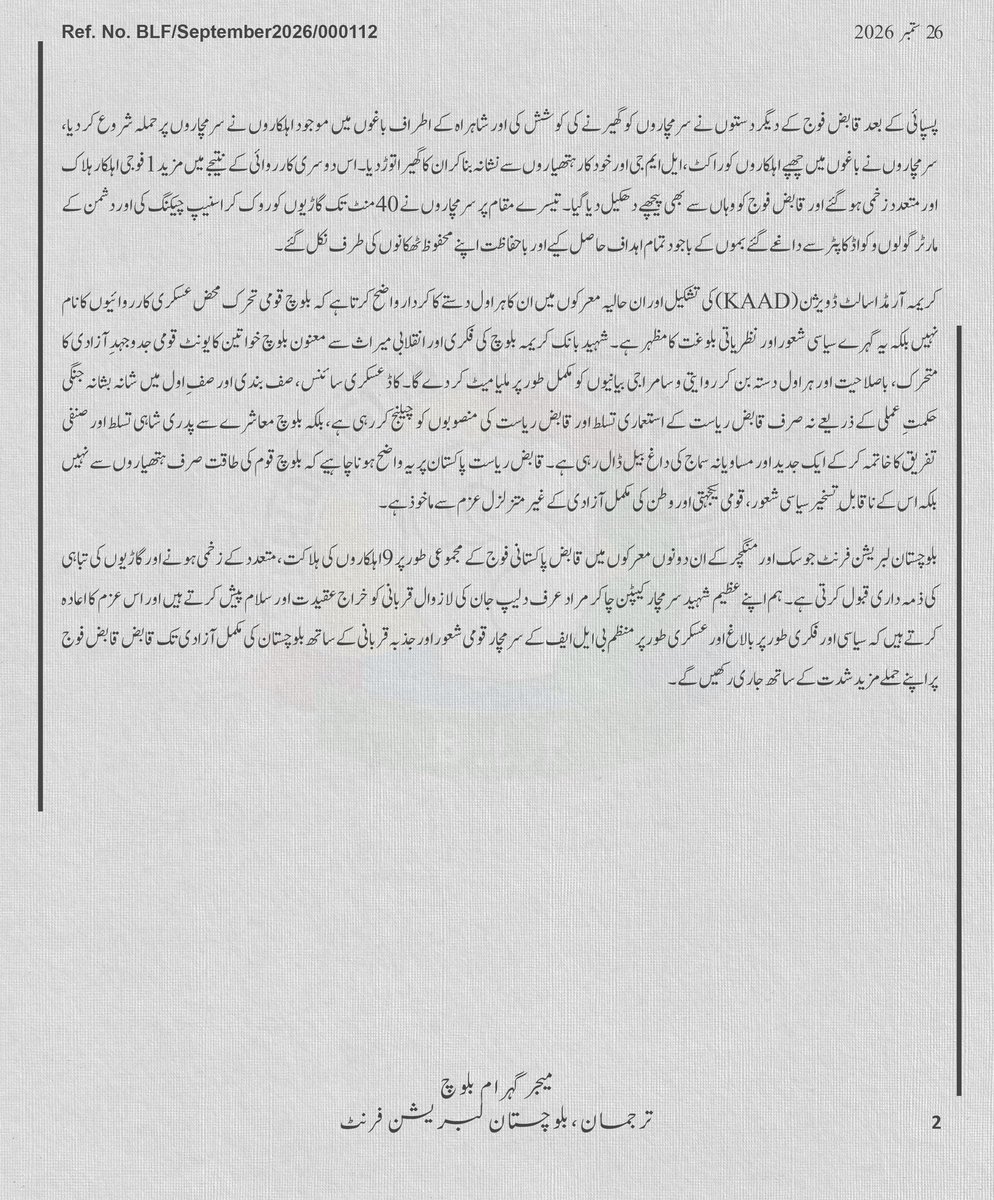 Ref. No. BLF/September2026/000112
26 ستمبر 2026
پسپائی کے بعد قابض فوج کے دیگر دستوں نے سرمچاروں کو گھیرنے کی کوشش کی اور شاہراہ کے اطراف باغوں میں موجود اہلکاروں نے سرمچاروں پر حملہ شروع کر دیا،
سرمچاروں نے باغوں میں چھپے اہلکاروں کو راکٹ، ایل ایم جی اور خودکار ہتھیاروں سے نشانہ بنا کر ان کا گھیرا توڑ دیا۔ اس دوسری کارروائی کے نتیجے میں مزید 1 فوجی اہلکار ہلاک
اور متعدد زخمی ہو گئے اور قابض فوج کو وہاں سے بھی پیچھے دھکیل دیا گیا۔ تیسرے مقام پر سرمچاروں نے 40 منٹ تک گاڑیوں کو روک کر اسنیپ چیکنگ کی اور دشمن کے
مارٹر گولوں و کواڈ کاپٹر سے داغے گئے بموں کے باجود تمام اہداف حاصل کیے اور باحفاظت اپنے محفوظ ٹھکانوں کی طرف نکل گئے۔
کریمہ آرمڈ اسالٹ ڈویژن (KAAD) کی تشکیل اور ان حالیہ معرکوں میں ان کا ہراول دستے کا کردار واضح کرتا ہے کہ بلوچ قومی تحرک محض عسکری کارروائیوں کا نام
نہیں بلکہ یہ گہرے سیاسی شعور اور نظریاتی بلوغت کا مظہر ہے۔ شہید بانک کریمہ بلوچ کی فکری اور انقلابی میراث سے معنون بلوچ خواتین کا یونٹ قومی جدوجہدِ آزادی کا
متحرک، باصلاحیت اور ہراول دستہ بن کر روایتی و سامراجی بیانیوں کو مکمل طور پر ملیامیٹ کر دے گا۔ کاڈ عسکری سائنس، صف بندی اور صفِ اول میں شانہ بشانہ جنگی
حکمتِ عملی کے ذریعے نہ صرف قابض ریاست کے استعماری تسلط اور قابض ریاست کی منصوبوں کو چیلنج کر رہی ہے، بلکہ بلوچ معاشرے سے پدری شاہی تسلط اور صنفی
تفریق کا خاتمہ کر کے ایک جدید اور مساویانہ سماج کی داغ بیل ڈال رہی ہے۔ قابض ریاست پاکستان پر یہ واضح ہونا چاہیے کہ بلوچ قوم کی طاقت صرف ہتھیاروں سے نہیں
بلکہ اس کے ناقابلِ تسخیر سیاسی شعور، قومی یکجہتی اور وطن کی مکمل آزادی کے غیر متزلزل عزم سے ماخوذ ہے۔
بلوچستان لبریشن فرنٹ جوسک اور منگچر کے ان دونوں معرکوں میں قابض پاکستانی فوج کے مجموعی طور پر 9 اہلکاروں کی ہلاکت، متعدد کے زخمی ہونے اور گاڑیوں کی تباہی
کی ذمہ داری قبول کرتی ہے۔ ہم اپنے عظیم شہید سرمچار کیپٹن چاکر مراد عرف دلیپ جان کی لازوال قربانی کو خراج عقیدت اور سلام پیش کرتے ہیں اور اس عزم کا اعادہ
کرتے ہیں کہ سیاسی اور فکری طور پر بالاغ اور عسکری طور پر منظم بی ایل ایف کے سرمچار قومی شعور اور جذبہ قربانی کے ساتھ بلوچستان کی مکمل آزادی تک قابض قابض فوج
پر اپنے حملے مزید شدت کے ساتھ جاری رکھیں گے۔
میجر گہرام بلوچ
ترجمان، بلوچستان لبریشن فرنٹ
2